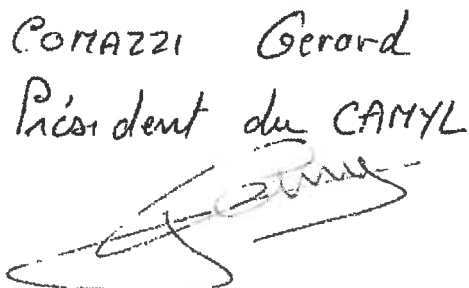 COMAZZI Gerard
Président du CAMYL